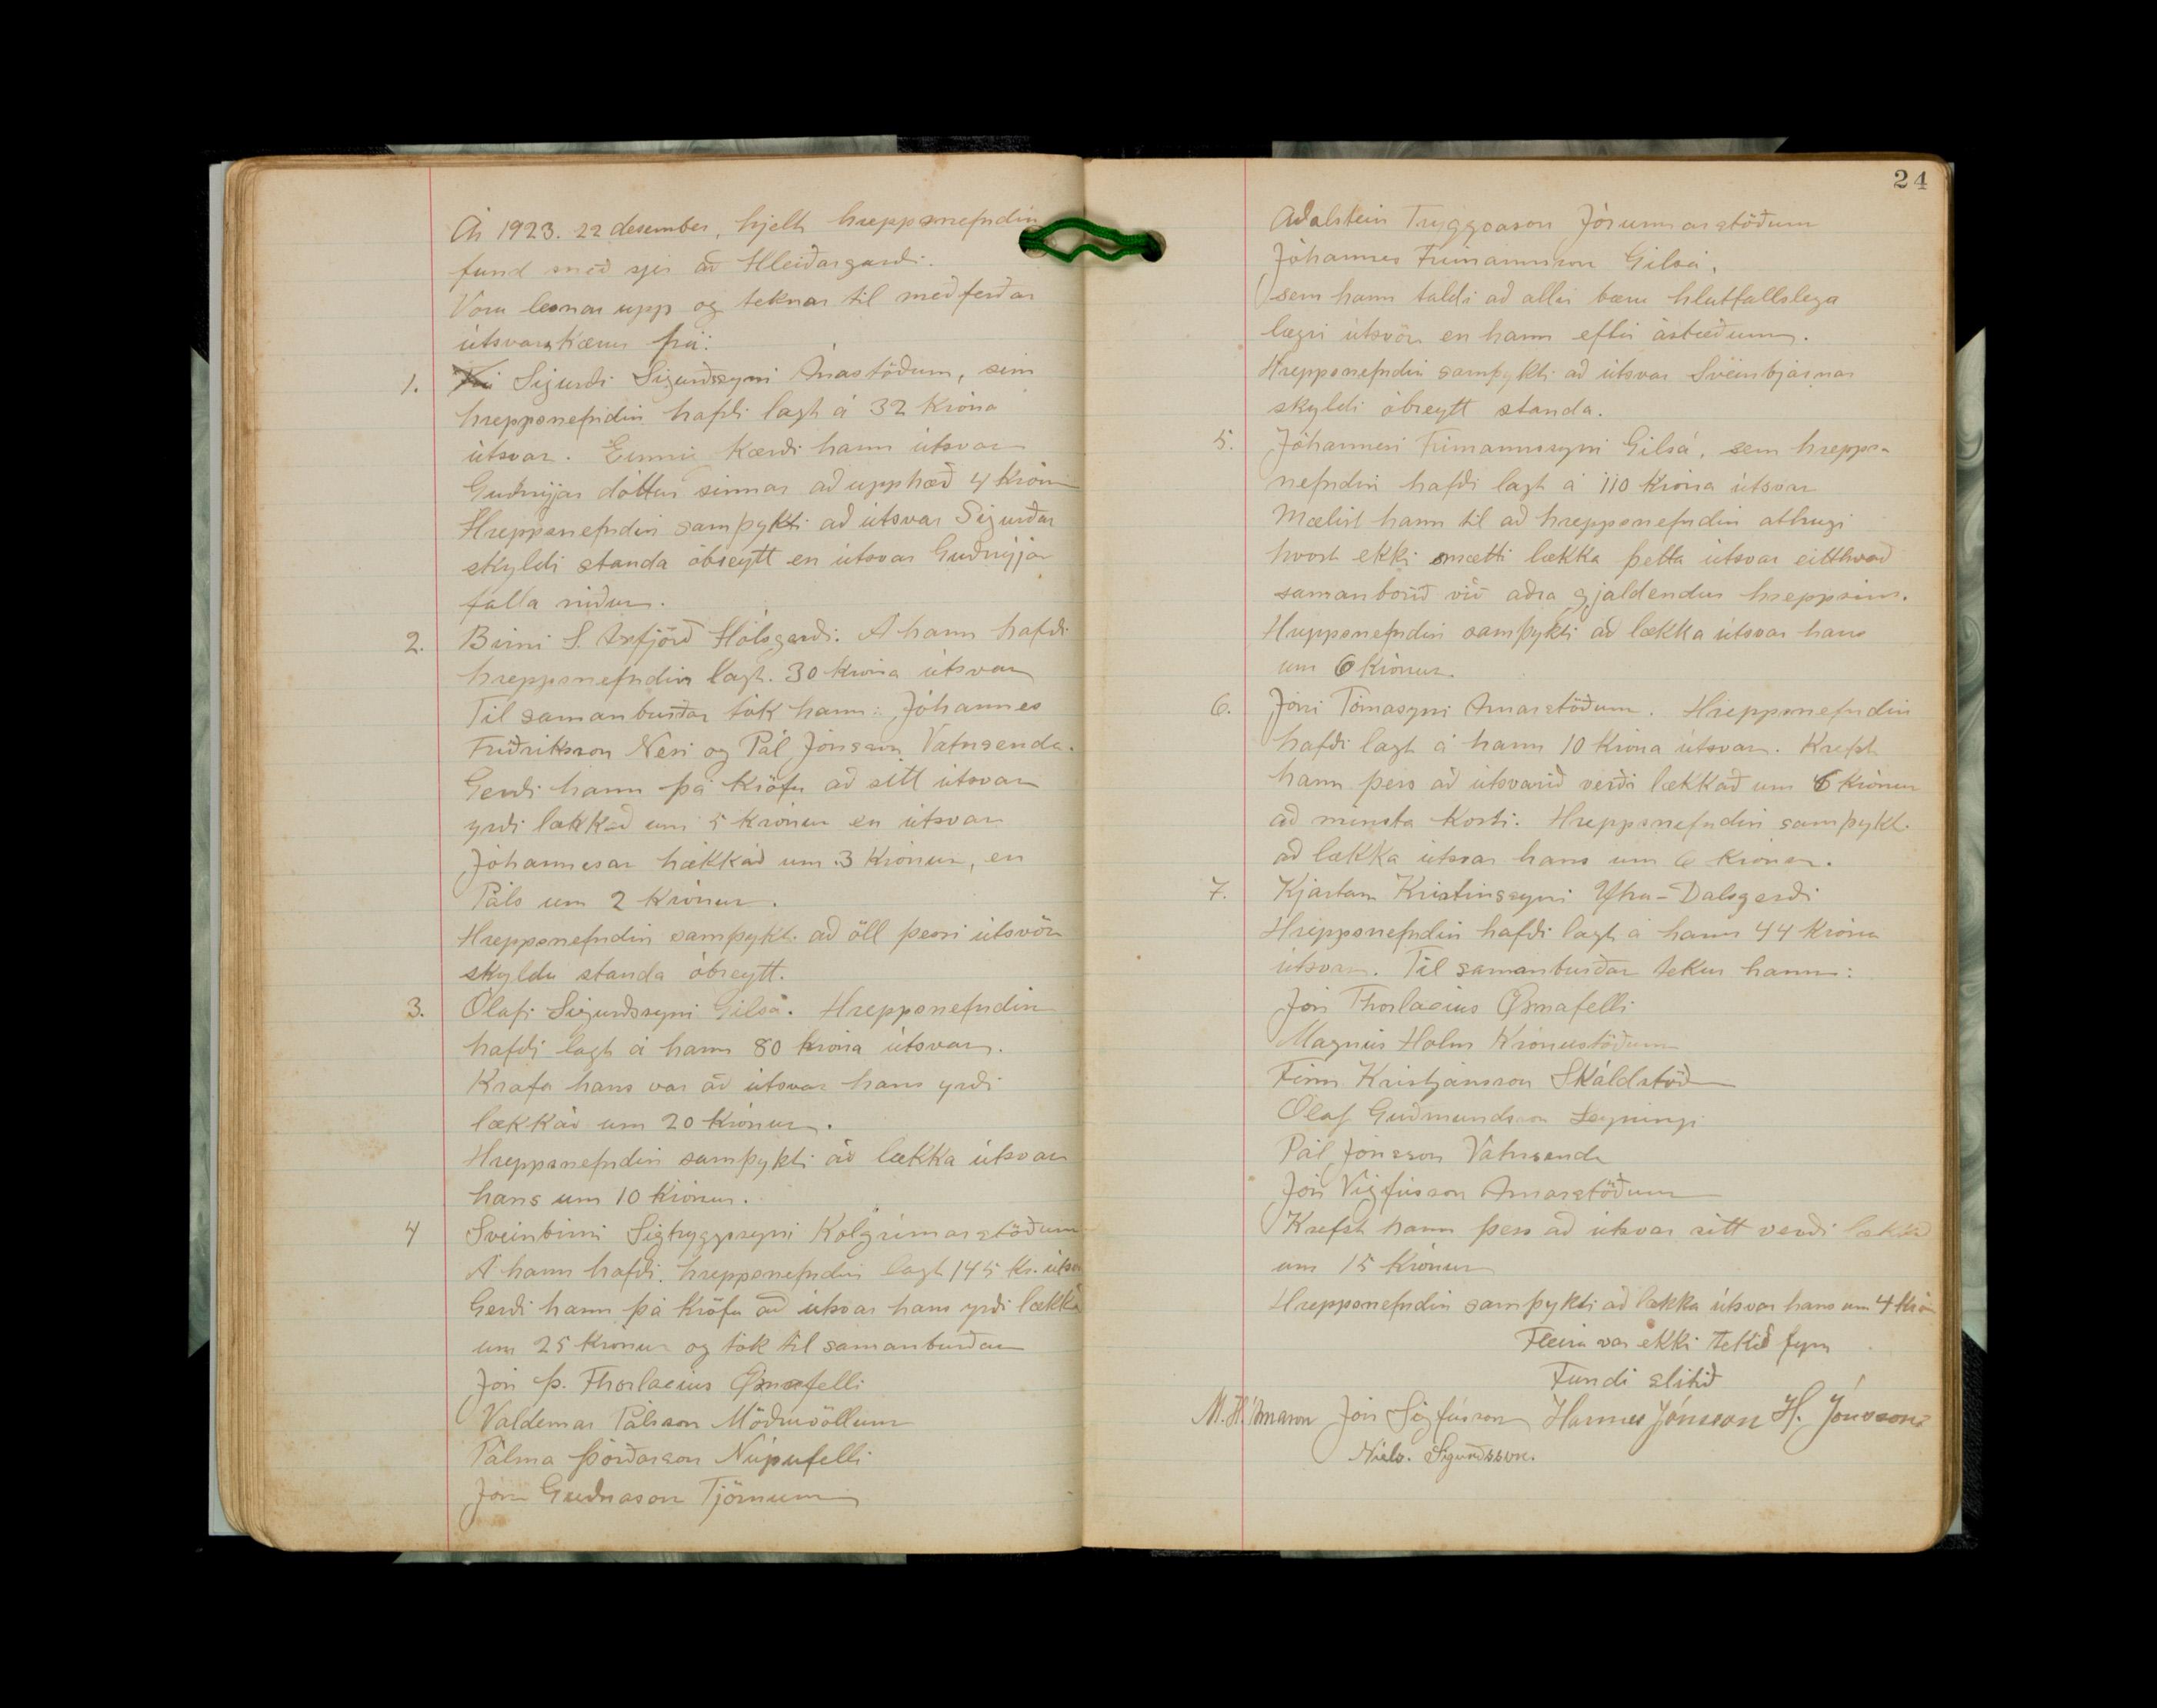 Ár 1923. 22 desember, hjelt hreppsnefndin
fund með sjer að Hleiðargarði.
Voru lesnar upp og teknar til meðferðar
útsvarskærur frá:
1. Sigurði Sigurðssyni Arnarstöðum, sem
hreppsnefndin hafði lagt á 32 króna
útsvar. Einnig kærði hann útsvar
Guðnýjar dóttur sinnar að upphæð 4 krónur
Hreppsnefndin samþykti að útsvar Sigurðar
skyldi standa óbreytt en útsvar Guðnýjar
falla niður.
2. Birni S. Axfjörð Hólsgerði. Á hann hafði
hreppsnefndin lagt. 30 króna útsvar
Til samanburðar tók hann: Jóhannes
Friðriksson Nesi og Pál Jónsson Vatnsenda.
Gerði hann þá kröfu að sitt útsvar
yrði lækkað um 5 krónur en útsvar
Jóhannesar hækkað um 3 krónur, en
Páls um 2 krónur.
Hreppsnefndin samþykti að öll þessi útsvör
skyldu standa óbreytt.
3. Ólafi Sigurðssyni Gilsá. Hreppsnefndin
hafði lagt á hann 80 króna útsvar.
Krafa hans var að útsvar hans yrði
lækkað um 20 krónur.
Hreppsnefndin samþykti að lækka útsvar
hans um 10 krónur.
4 Sveinbirni Sigtryggssyni Kolgrímarstöðum
Á hann hafði hreppsnefndin lagt 145 kr. útsv
Gerði hann þá kröfu að útsvar hans yrði lækka
um 25 krónur og tók til samanburðar
Jón Þ. Thorlacius Öxnafelli
Valdemar Pálsson Möðruvöllum
Pálma Þórðarson Núpufelli
Jón Guðnason Tjörnum
24
Aðalstein Tryggvason Jórunnarstöðum
Jóhannes Frímannsson Gilsá.
sem hann taldi að allir bæru hlutfallslega
lægri útsvör en hann eftir ástæðum.
Hreppsnefndin samþykti að útsvar Sveinbjarnar
skyldi óbreytt standa.
5. Jóhannesi Frímannssyni Gilsá, sem hrepps-
nefndin hafði lagt á 110 króna útsvar
Mælist hann til að hreppsnefndin athugi
hvort ekki mætti lækka þetta útsvar eitthvað
samanborið við aðra gjaldendur hreppsins.
Hreppsnefndin samþykti að lækka útsvar hans
um 6 krónur.
6. Jóni Tómassyni Arnarstöðum. Hreppsnefndin
hafði lagt á hann 10 króna útsvar. Krefst
hann þess að útsvarið verði lækkað um 6 krónur
að minsta kosti. Hreppsnefndin samþykt.
að lækka útsvar hans um 6 krónur.
7. Kjartan Kristinssyni Ytra-Dalsgerði
Hreppsnefndin hafði lagt á hann 44 króna
útsvar. Til samanburðar tekur hann:
Jón Thorlacius Öxnafelli
Magnús Holm Krónustöðum
Finn Kristjánsson Skáldstöð
Ólaf Guðmundsson Leyningi
Pál Jónsson Vatnsenda
Jón Vigfússon Arnarstöðum
Krefst hann þess að útsvar sitt verði lækkað
um 15 krónur
Hreppsnefndin samþykti að lækka útsvar hans um 4 krón
Fleira var ekki tekið fyrir
Fundi slitið
M. H. Árnason Jón Sigfússon Hannes Jónsson H. Jónsson
Níels. Sigurðsson.